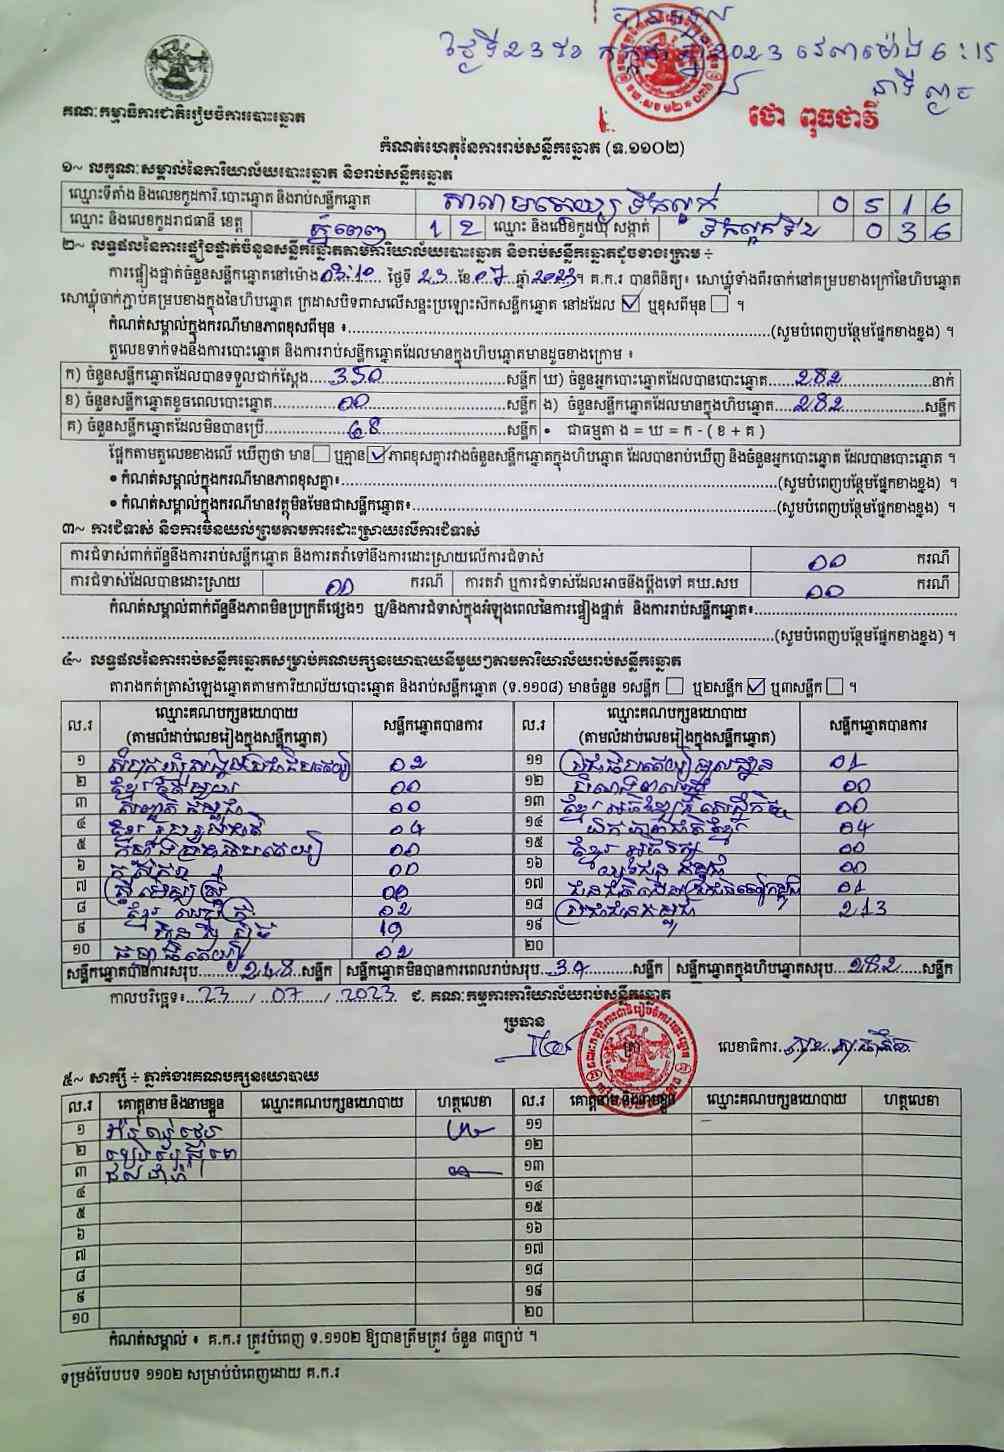 ថ្ងៃទី23 ខែ កក្កដា ឆ្នាំ2023 វេលាម៉ោង 6:15
នាទី ល្ងាច
គណៈកម្មាធិការជាតិរៀបចំការបោះឆ្នោត
ថោ ពុធថាវី
កំណត់ហេតុនៃការរាប់សន្លឹកឆ្នោត (ទ.១១០២)
១~ លក្ខណៈសម្គាល់នៃការិយាល័យបោះឆ្នោត និងរាប់សន្លឹកឆ្នោត
ឈ្មោះទីតាំង និងលេខកូដការិ.បោះឆ្នោត និងរាប់សន្លឹកឆ្នោត 0 5 1 6
ឈ្មោះ និងលេខកូដរាជធានី ខេត្ត ភ្នំពេញ 1 2 ឈ្មោះ និងលេខកូដឃុំ សង្កាត់ 0 3 6
២~ លទ្ធផលនៃការផ្ទៀងផ្ទាត់ចំនួនសន្លឹកឆ្នោតតាមការិយាល័យបោះឆ្នោត និងរាប់សន្លឹកឆ្នោតដូចខាងក្រោម ÷
ការផ្ទៀងផ្ទាត់ចំនួនសន្លឹកឆ្នោតនៅម៉ោង 03:10 ថ្ងៃទី 23 ខែ 07 ឆ្នាំ 2023។ គ.ក.រ បានពិនិត្យ៖ សោឃ្លុំទាំងពីរចាក់នៅគម្របខាងក្រៅនៃហិបឆ្នោត
សោឃ្លុំចាក់ភ្ជាប់គម្របខាងក្នុងនៃហិបឆ្នោត ក្រដាសបិទពាសលើសន្ទះប្រឡោះស៊កសន្លឹកឆ្នោត នៅដដែល ☑ ឬខុសពីមុន ☐ ។
កំណត់សម្គាល់ក្នុងករណីមានភាពខុសពីមុន ៖........(សូមបំពេញបន្ថែមផ្នែកខាងខ្នង) ។
តួលេខទាក់ទងនឹងការបោះឆ្នោត និងការរាប់សន្លឹកឆ្នោតដែលមានក្នុងហិបឆ្នោតមានដូចខាងក្រោម ៖
ក) ចំនួនសន្លឹកឆ្នោតដែលបានទទួលជាក់ស្តែង....350....សន្លឹក ឃ) ចំនួនអ្នកបោះឆ្នោតដែលបានបោះឆ្នោត....282....នាក់
ខ) ចំនួនសន្លឹកឆ្នោតខូចពេលបោះឆ្នោត....00....សន្លឹក ង) ចំនួនសន្លឹកឆ្នោតដែលមានក្នុងហិបឆ្នោត....282....សន្លឹក
គ) ចំនួនសន្លឹកឆ្នោតដែលមិនបានប្រើ....68....សន្លឹក • ជាធម្មតា ង = ឃ = ក - ( ខ + គ )
ផ្អែកតាមតួលេខខាងលើ ឃើញថា មាន ☐ ឬគ្មាន ☑ ភាពខុសគ្នារវាងចំនួនសន្លឹកឆ្នោតក្នុងហិបឆ្នោត ដែលបានរាប់ឃើញ និងចំនួនអ្នកបោះឆ្នោត ដែលបានបោះឆ្នោត ។
• កំណត់សម្គាល់ក្នុងករណីមានភាពខុសគ្នា៖........(សូមបំពេញបន្ថែមផ្នែកខាងខ្នង) ។
• កំណត់សម្គាល់ក្នុងករណីមានវត្ថុមិនមែនជាសន្លឹកឆ្នោត៖........(សូមបំពេញបន្ថែមផ្នែកខាងខ្នង) ។
៣~ ការជំទាស់ និងការមិនយល់ព្រមតាមការដោះស្រាយលើការជំទាស់
ការជំទាស់ពាក់ព័ន្ធនឹងការរាប់សន្លឹកឆ្នោត និងការតវ៉ាទៅនឹងការដោះស្រាយលើការជំទាស់ 00 ករណី
ការជំទាស់ដែលបានដោះស្រាយ 00 ករណី ការតវ៉ា ឬការជំទាស់ដែលអាចនឹងប្តឹងទៅ គឃ.សប 00 ករណី
កំណត់សម្គាល់ពាក់ព័ន្ធនឹងភាពមិនប្រក្រតីផ្សេងៗ ឬ/និងការជំទាស់ក្នុងអំឡុងពេលនៃការផ្ទៀងផ្ទាត់ និងការរាប់សន្លឹកឆ្នោត៖........
........(សូមបំពេញបន្ថែមផ្នែកខាងខ្នង) ។
៤~ លទ្ធផលនៃការរាប់សន្លឹកឆ្នោតសម្រាប់គណបក្សនយោបាយនីមួយៗតាមការិយាល័យរាប់សន្លឹកឆ្នោត
តារាងកត់ត្រាសំឡេងឆ្នោតតាមការិយាល័យបោះឆ្នោត និងរាប់សន្លឹកឆ្នោត (ទ.១១០៨) មានចំនួន ១សន្លឹក ☐ ឬ២សន្លឹក ☑ ឬ៣សន្លឹក ☐ ។
ល.រ ឈ្មោះគណបក្សនយោបាយ (តាមលំដាប់លេខរៀងក្នុងសន្លឹកឆ្នោត) សន្លឹកឆ្នោតបានការ ល.រ ឈ្មោះគណបក្សនយោបាយ (តាមលំដាប់លេខរៀងក្នុងសន្លឹកឆ្នោត) សន្លឹកឆ្នោតបានការ
១ 02 ១១ 01
២ ខ្មែរតែមួយ 00 ១២ 00
៣ 00 ១៣ ខ្មែរអភិវឌ្ឍន៍សេដ្ឋកិច្ច 00
៤ ខ្មែររួបរួមជាតិ 04 ១៤ ឯកភាពជាតិខ្មែរ 04
៥ 00 ១៥ ខ្មែរអភិរក្ស 00
៦ កសិករ 00 ១៦ 00
៧ ស្ត្រីដើម្បីស្ត្រី 00 ១៧ 01
៨ 02 ១៨ ប្រជាជនកម្ពុជា 213
៩ ហ្វ៊ុនស៊ិនប៉ិច 19 ១៩
១០ 02 ២០
សន្លឹកឆ្នោតបានការសរុប....248....សន្លឹក សន្លឹកឆ្នោតមិនបានការពេលរាប់សរុប....34....សន្លឹក សន្លឹកឆ្នោតក្នុងហិបឆ្នោតសរុប....282....សន្លឹក
កាលបរិច្ឆេទ៖ 23 / 07 / 2023 ជ. គណៈកម្មការការិយាល័យរាប់សន្លឹកឆ្នោត
ប្រធាន
លេខាធិការ
៥~ សាក្សី ÷ ភ្នាក់ងារគណបក្សនយោបាយ
ល.រ គោត្តនាម និងនាមខ្លួន ឈ្មោះគណបក្សនយោបាយ ហត្ថលេខា ល.រ គោត្តនាម និងនាមខ្លួន ឈ្មោះគណបក្សនយោបាយ ហត្ថលេខា
១ ១១
២ ១២
៣ ១៣
៤ ១៤
៥ ១៥
៦ ១៦
៧ ១៧
៨ ១៨
៩ ១៩
១០ ២០
កំណត់សម្គាល់ ៖ គ.ក.រ ត្រូវបំពេញ ទ.១១០២ ឱ្យបានត្រឹមត្រូវ ចំនួន ៣ច្បាប់ ។
ទម្រង់បែបបទ ១១០២ សម្រាប់បំពេញដោយ គ.ក.រ